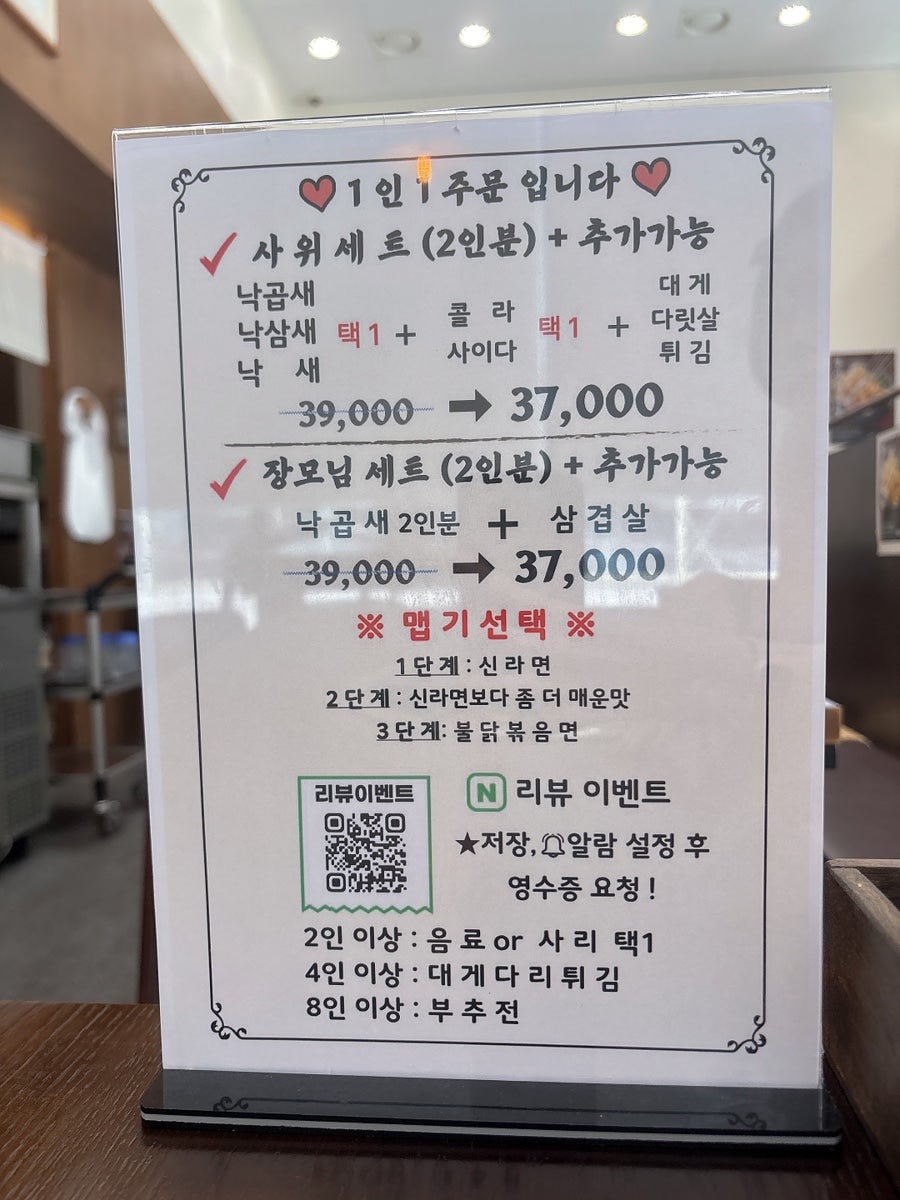 1인 1 주문 입니다
사위세트 (2인분) + 추가가능
낙곱새
낙삼새
낙 새
택1 +
콜 라
사이다
택1 +
대게
다릿살
튀김
39,000 → 37,000
장모님 세트 (2인분) + 추가가능
낙곱새 2인분 + 삼겹살
39,000 → 37,000
※ 맵기선택 ※
1단계 : 신라면
2단계 : 신라면보다 좀 더 매운맛
3단계: 불닭볶음면
리뷰이벤트
N 리뷰 이벤트
★저장, 알람 설정 후
영수증 요청 !
2인 이상 : 음료 or 사리 택1
4인 이상 : 대게다리튀김
8인 이상 : 부추전